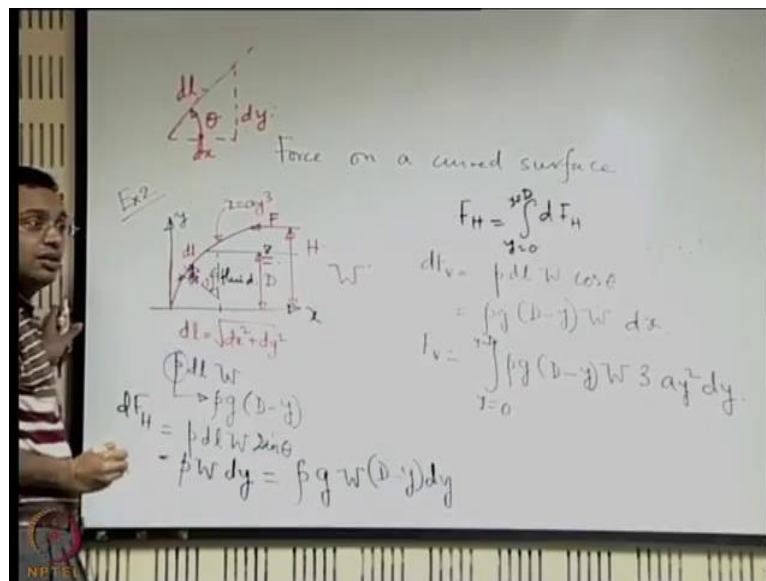 dl
θ
dy
dx
Force on a curved surface
Ex2
y
x=ay³
F
dl
fluid
D
H
W
x
dl=√dx²+dy²
pdl W
ρg(D-y)
dF_H = pdl W sinθ
= pW dy = ρg W(D-y)dy
F_H = ∫_{y=0}^{y=D} dF_H
dF_v = pdl W cosθ
= ρg (D-y) W dx
F_v = ∫_{y=0}^{y=D} ρg (D-y) W 3 ay² dy
NPTEL